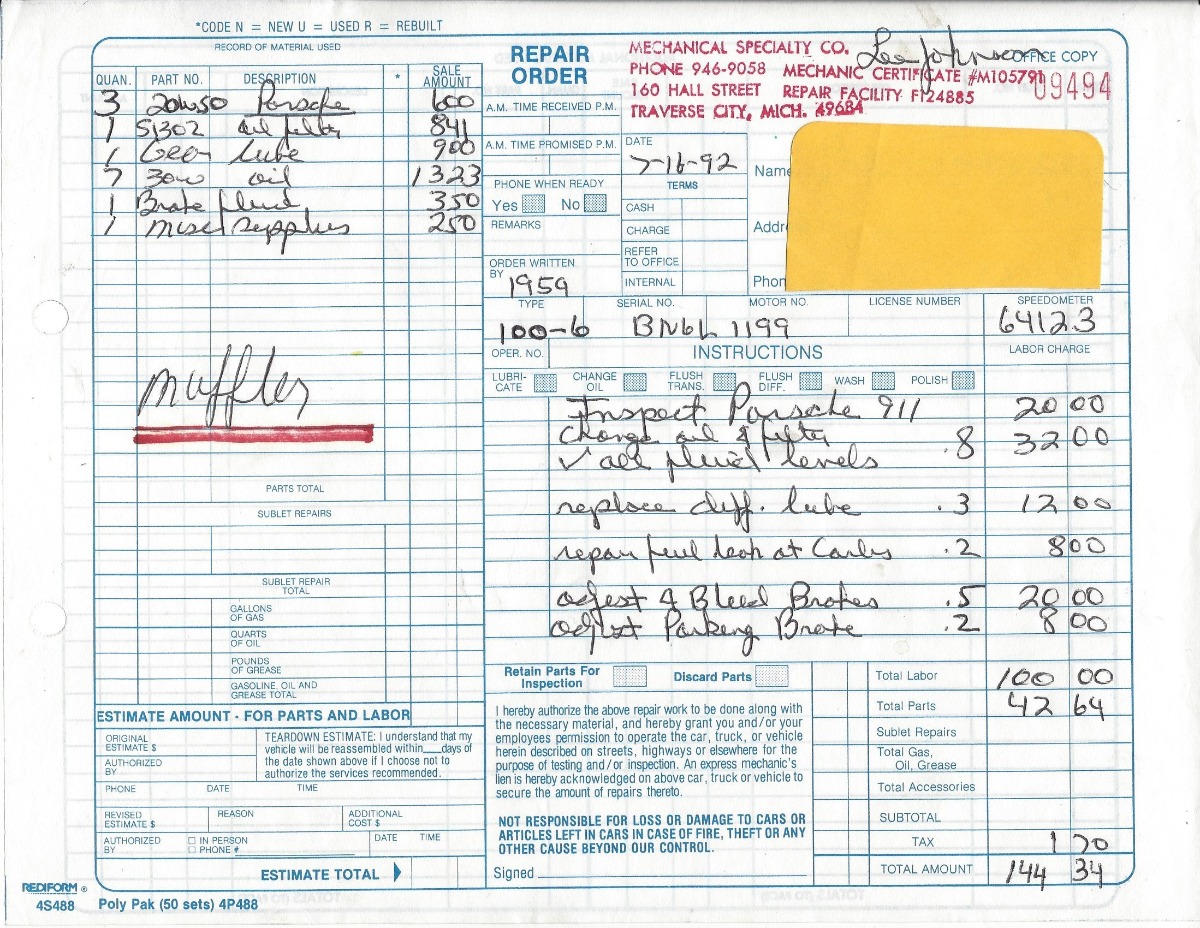 *CODE N = NEW U = USED R = REBUILT
RECORD OF MATERIAL USED
QUAN. PART NO. DESCRIPTION * SALE AMOUNT
3 20W50 Porsche 600
1 51302 oil filter 841
1 Gear lube 900
7 30w oil 1323
1 Brake fluid 350
1 misc supplies 250
muffler
PARTS TOTAL
SUBLET REPAIRS
SUBLET REPAIR TOTAL
GALLONS OF GAS
QUARTS OF OIL
POUNDS OF GREASE
GASOLINE, OIL AND GREASE TOTAL
ESTIMATE AMOUNT - FOR PARTS AND LABOR
ORIGINAL ESTIMATE $
AUTHORIZED BY
TEARDOWN ESTIMATE: I understand that my
vehicle will be reassembled within___days of
the date shown above if I choose not to
authorize the services recommended.
PHONE DATE TIME
REVISED ESTIMATE $ REASON ADDITIONAL COST $
AUTHORIZED BY □ IN PERSON □ PHONE # DATE TIME
ESTIMATE TOTAL
REDIFORM ®
4S488 Poly Pak (50 sets) 4P488
REPAIR ORDER
MECHANICAL SPECIALTY CO. Lee Johnson OFFICE COPY
PHONE 946-9058 MECHANIC CERTIFICATE #M105791
160 HALL STREET REPAIR FACILITY F124885 09494
TRAVERSE CITY, MICH. 49684
A.M. TIME RECEIVED P.M.
A.M. TIME PROMISED P.M.
DATE
7-16-92
Name
PHONE WHEN READY
Yes No
TERMS
CASH
CHARGE
REFER TO OFFICE
INTERNAL
REMARKS
Addr
Phon
ORDER WRITTEN BY
1959
TYPE SERIAL NO. MOTOR NO. LICENSE NUMBER SPEEDOMETER
100-6 BN6L 1199 64123
OPER. NO. INSTRUCTIONS LABOR CHARGE
LUBRICATE CHANGE OIL FLUSH TRANS. FLUSH DIFF. WASH POLISH
Inspect Porsche 911 20 00
Change oil & filter .8 32 00
✓ all fluid levels
replace diff. lube .3 12 00
repair fuel leak at Carbs .2 8 00
adjest & Bleed Brakes .5 20 00
adjust Parking Brake .2 8 00
Retain Parts For Inspection Discard Parts
I hereby authorize the above repair work to be done along with
the necessary material, and hereby grant you and/or your
employees permission to operate the car, truck, or vehicle
herein described on streets, highways or elsewhere for the
purpose of testing and/or inspection. An express mechanic's
lien is hereby acknowledged on above car, truck or vehicle to
secure the amount of repairs thereto.
NOT RESPONSIBLE FOR LOSS OR DAMAGE TO CARS OR
ARTICLES LEFT IN CARS IN CASE OF FIRE, THEFT OR ANY
OTHER CAUSE BEYOND OUR CONTROL.
Signed
Total Labor 100 00
Total Parts 42 64
Sublet Repairs
Total Gas, Oil, Grease
Total Accessories
SUBTOTAL
TAX 1 70
TOTAL AMOUNT 144 34